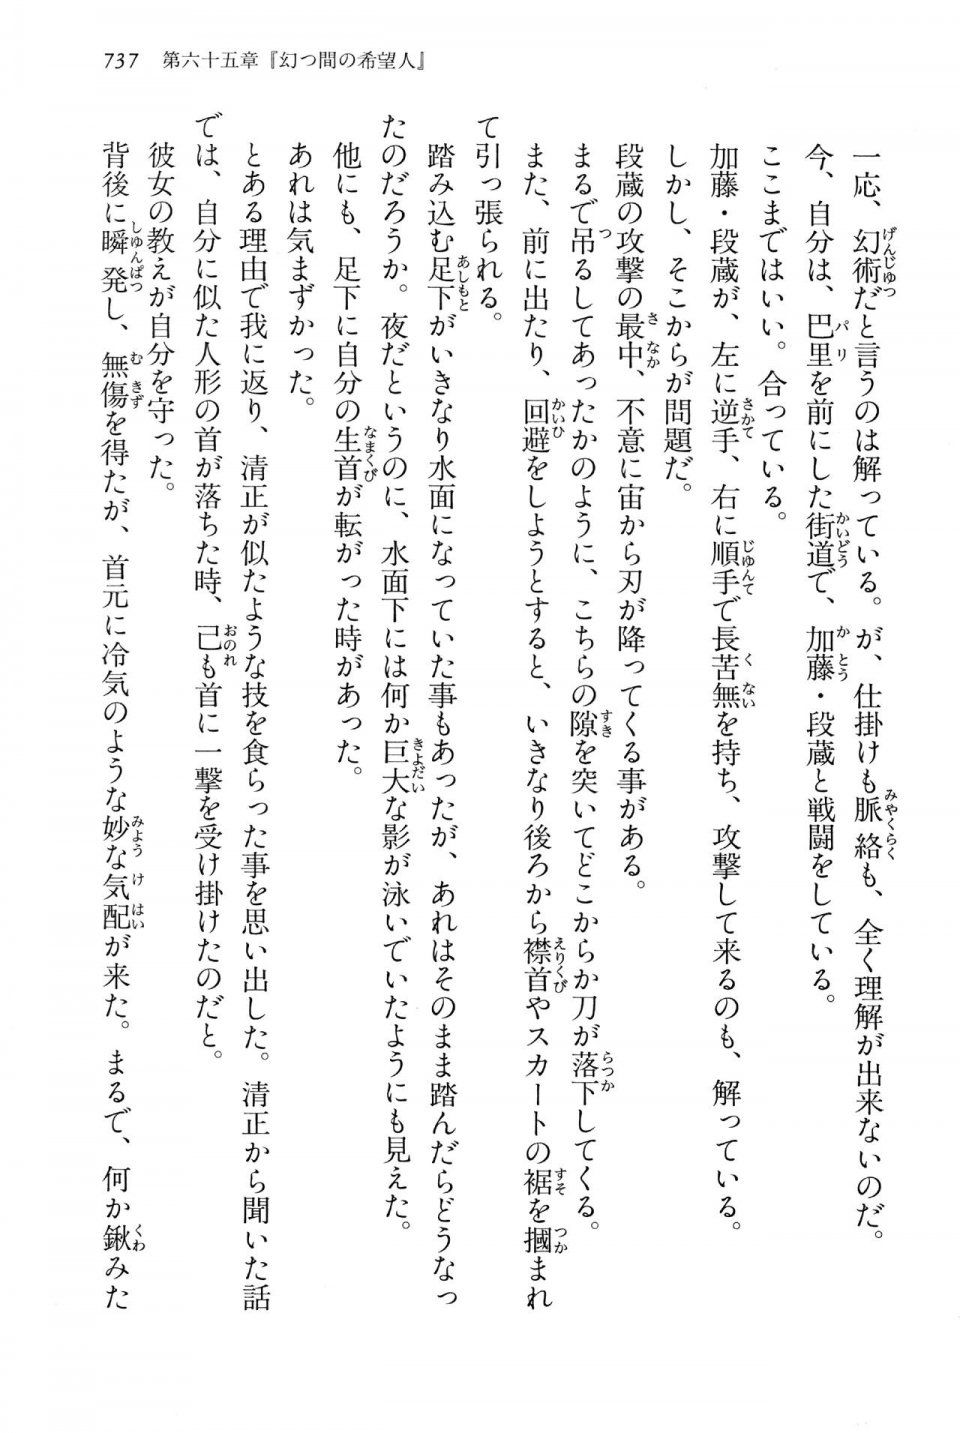 737　第六十五章『幻つ間の希望人』
一応、幻術だと言うのは解っている。が、仕掛けも脈絡も、全く理解が出来ないのだ。
今、自分は、巴里を前にした街道で、加藤・段蔵と戦闘をしている。
ここまではいい。合っている。
加藤・段蔵が、左に逆手、右に順手で長苦無を持ち、攻撃して来るのも、解っている。
しかし、そこからが問題だ。
段蔵の攻撃の最中、不意に宙から刃が降ってくる事がある。
まるで吊るしてあったかのように、こちらの隙を突いてどこからか刀が落下してくる。
また、前に出たり、回避をしようとすると、いきなり後ろから襟首やスカートの裾を摑まれ
て引っ張られる。
踏み込む足下がいきなり水面になっていた事もあったが、あれはそのまま踏んだらどうなっ
たのだろうか。夜だというのに、水面下には何か巨大な影が泳いでいたようにも見えた。
他にも、足下に自分の生首が転がった時があった。
あれは気まずかった。
とある理由で我に返り、清正が似たような技を食らった事を思い出した。清正から聞いた話
では、自分に似た人形の首が落ちた時、己も首に一撃を受け掛けたのだと。
彼女の教えが自分を守った。
背後に瞬発し、無傷を得たが、首元に冷気のような妙な気配が来た。まるで、何か鍬みた